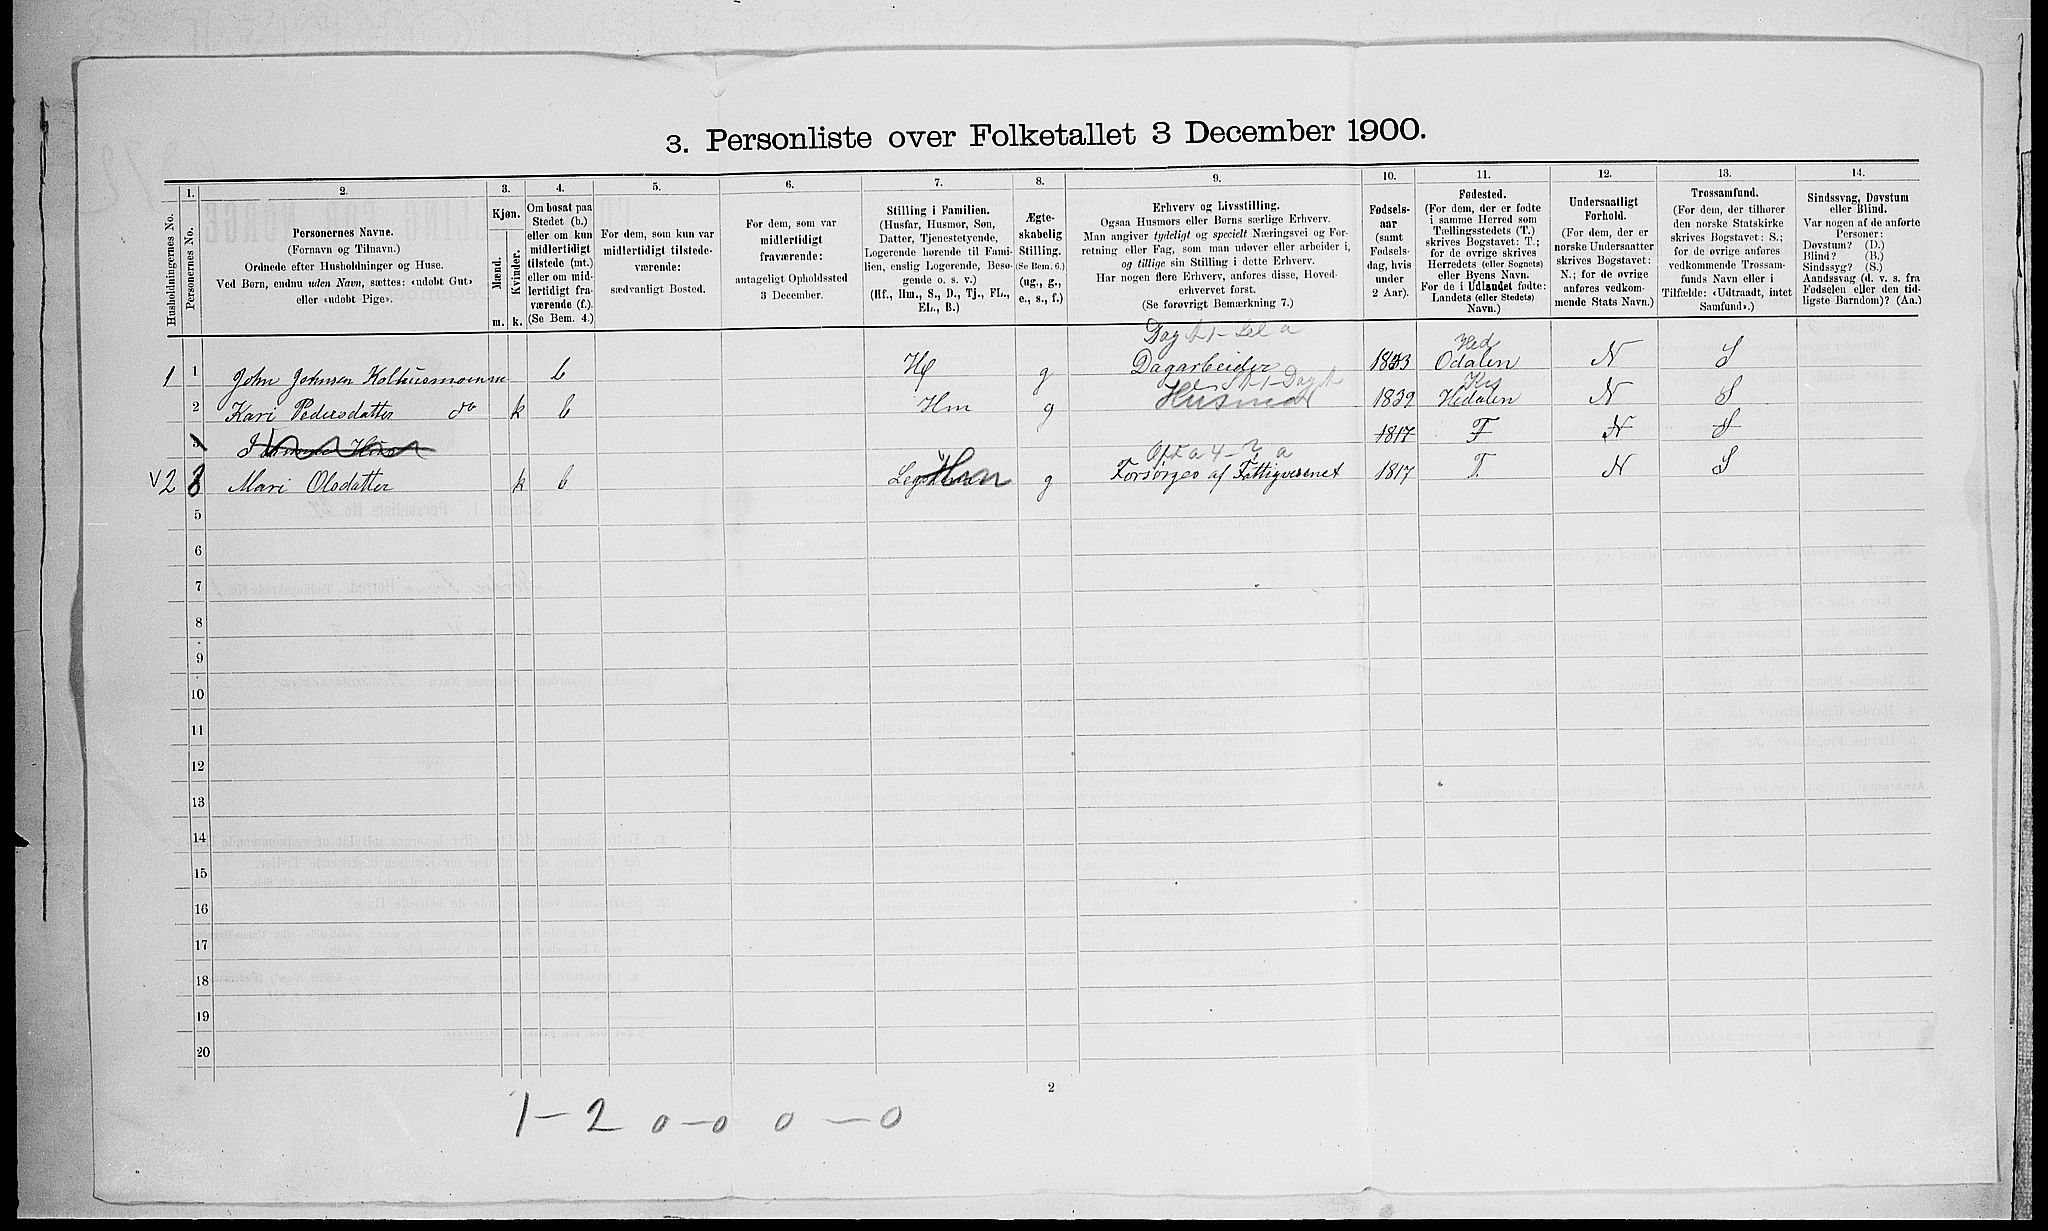 3. Personliste over Folketallet 3 December 1900.
Husholdningernes No.
1.
Personernes No.
2.
Personernes Navne.
(Fornavn og Tilnavn.)
Ordnede efter Husholdninger og Huse.
Ved Børn, endnu uden Navn, sættes: «udøbt Gut»
eller «udøbt Pige».
3.
Kjøn.
Mænd.
Kvinder.
m. k.
4.
Om bosat paa
Stedet (b.)
eller om kun
midlertidigt
tilstede (mt.)
eller om mid-
lertidigt fra-
værende (f.).
(Se Bem. 4.)
5.
For dem, som kun var
midlertidigt tilstede-
værende:
sædvanligt Bosted.
6.
For dem, som var
midlertidigt
fraværende:
antageligt Opholdssted
3 December.
7.
Stilling i Familien.
(Husfar, Husmor, Søn,
Datter, Tjenestetyende,
Logerende hørende til Fami-
lien, enslig Logerende, Besø-
gende o. s. v.)
(Hf., Hm., S., D., Tj., FL.,
EL., B.)
8.
Ægte-
skabelig
Stilling.
(Se Bem. 6.)
(ug., g.,
e., s., f.)
9.
Erhverv og Livsstilling.
Ogsaa Husmors eller Børns særlige Erhverv.
Man angiver tydeligt og specielt Næringsvei og For-
retning eller Fag, som man udøver eller arbeider i,
og tillige sin Stilling i dette Erhverv.
Har nogen flere Erhverv, anføres disse, Hoved-
erhvervet først.
(Se forøvrigt Bemærkning 7.)
10.
Fødsels-
aar
(samt
Fødsels-
dag, hvis
under
2 Aar).
11.
Fødested.
(For dem, der er fødte
i samme Herred som
Tællingsstedets (T.)
skrives Bogstavet: T.;
for de øvrige skrives
Herredets (eller Sognets)
eller Byens Navn.
For de i Udlandet fødte:
Landets (eller Stedets)
Navn.)
12.
Undersaatligt
Forhold.
(For dem, der er
norske Undersaatter
skrives Bogstavet:
N.; for de øvrige
anføres vedkom-
mende Stats Navn.)
13.
Trossamfund.
(For dem, der tilhører
den norske Statskirke
skrives Bogstavet: S.;
for de øvrige anføres
vedkommende Trossam-
funds Navn eller i
Tilfælde: «Udtraadt, intet
Samfund».)
14.
Sindssvag, Døvstum
eller Blind.
Var nogen af de anførte
Personer:
Døvstum? (D.)
Blind? (B.)
Sindssyg? (S.)
Aandssvag (d. v. s. fra
Fødselen eller den tid-
ligste Barndom)? (Aa.)
Hed
1 1 John Johnsen Kolhusmoen b Hf g Dagarbeider Odalen N S
2 Kari Pedersdatter do k b Hm g 1839 Hedalen N S
3 1817 T N S
2 3 Mari Olsdatter k b g Forsørges af Fattigvæsenet 1817 T N S
5
6
7
8
9
10
11
12
13
14
15
16
17
18
19
20
2
1 - 2 0 - 0 0 - 0